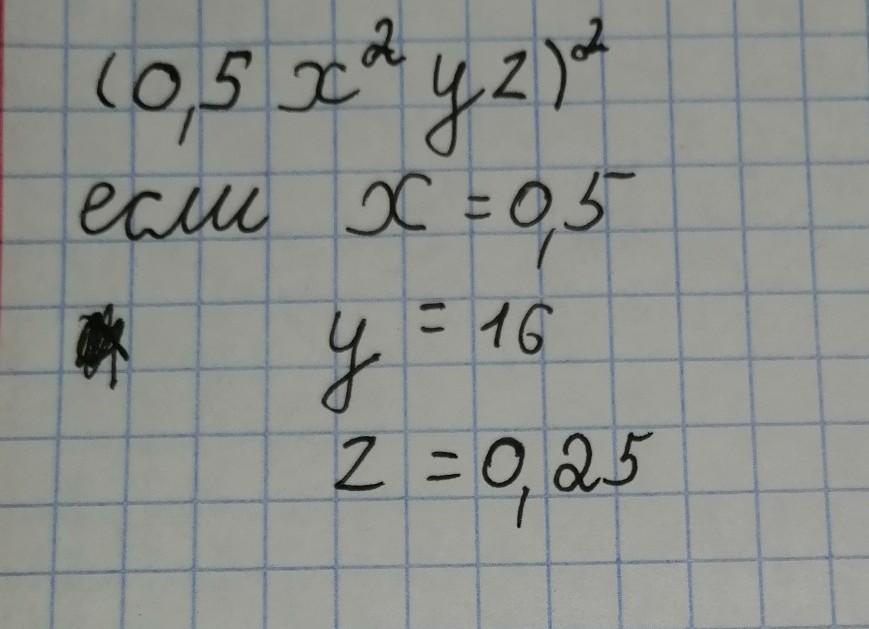 (0,5 x² y z)²
если x = 0,5
y = 16
z = 0,25